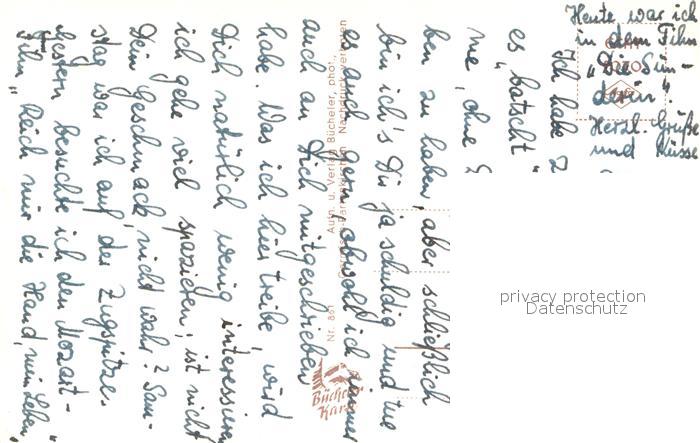 Ich habe
es "batscht"
me, ohne
ben zu haben, aber schließlich
bin ich's Dir ja schuldig und tue
es auch gern, obwohl ich immer
auch an Dich mitgeschrieben
habe. Was ich hier treibe, wird
Dich natürlich wenig interessieren
ich gehe viel spazieren, ist nicht
Dein Geschmack, nicht wahr? Sam-
stag war ich auf der Zugspitze.
Gestern besuchte ich den Mozart-
film "Reich mir die Hand, mein Leben"
Heute war ich
in dem Film
"Die Sün-
derin"
Herzl. Grüße
und Küsse
Aufn. u. Verlag Bücheler, phot.,
Garmisch-Partenkirchen Nachdruck verboten
Nr. 861
Bücheler
Karte
privacy protection
Datenschutz